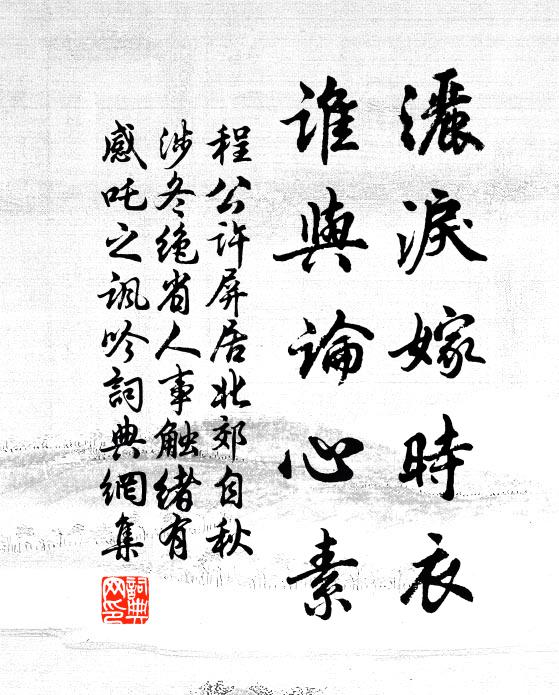 灑淚嫁時衣
誰與論心素
程公许屏居北郊自秋
涉冬绝省人事触绪有
感吒之讽吟詞典網集
詞典網印